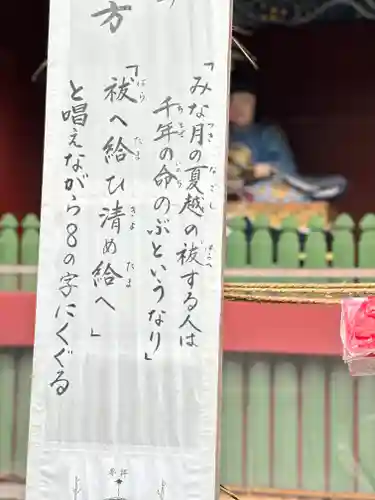 「みな月の夏越の祓する人は
千年の命のぶというなり」
「祓へ給ひ清め給へ」
と唱えながら8の字にくぐる
方